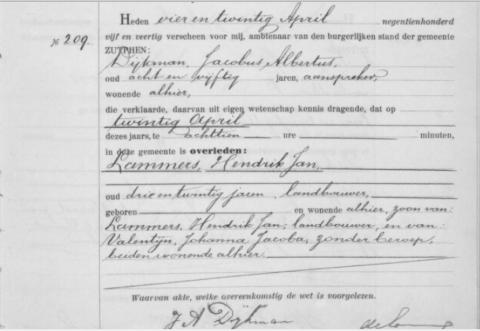 Heden vier en twintig April negentienhonderd
№ 209. vijf en veertig verscheen voor mij, ambtenaar van den burgerlijken stand der gemeente
ZUTPHEN:
Dijkman, Jacobus Albertus,
oud acht en vijftig jaren, aanspreker,
wonende alhier,
die verklaarde, daarvan uit eigen wetenschap kennis dragende, dat op
twintig April
dezes jaars, te achttien ure minuten,
in deze gemeente is overleden:
Lammers, Hendrik Jan,
oud drie en twintig jaren, landbouwer,
geboren en wonende alhier, zoon van:
Lammers, Hendrik Jan, landbouwer, en van:
Valentyn, Johanna Jacoba, zonder beroep,
beiden wonende alhier.
Waarvan akte, welke overeenkomstig de wet is voorgelezen.
J A Dijkman